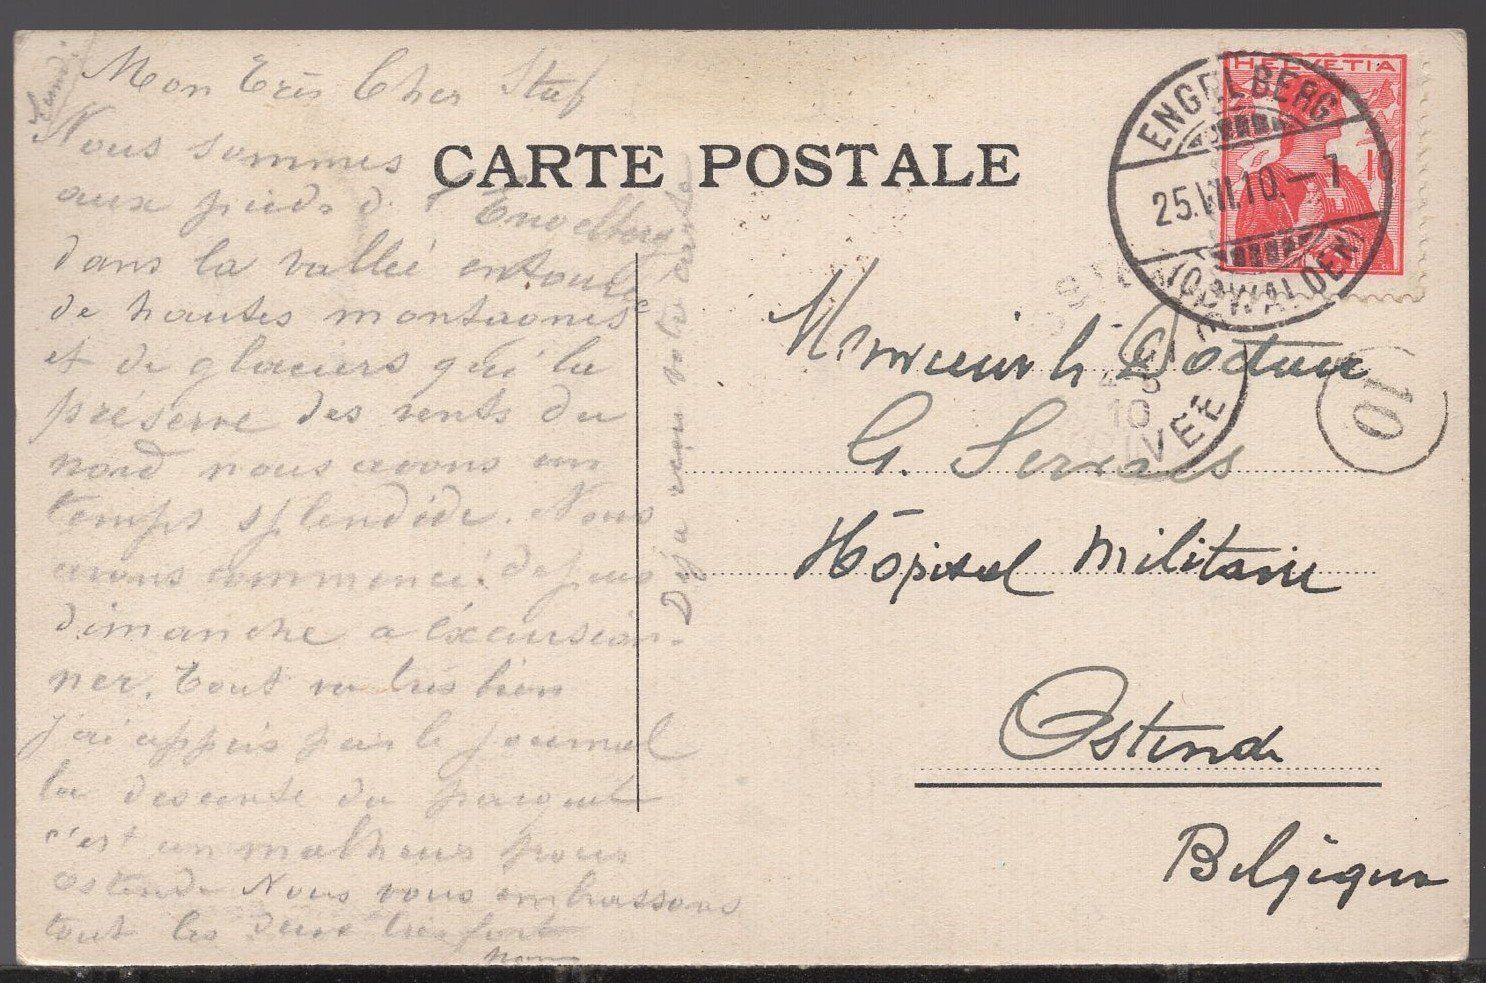 Lundi
Mon Très Cher Staf
Nous sommes
aux pieds d. l'Engelberg
dans la vallée entouré
de hautes montagnes
et de glaciers qui la
préserve des vents du
nord nous avons un
temps splendide. Nous
avons commencé depuis
dimanche a l'éxcursion-
ner. Tout va très bien
j'ai appris par le journal
la descente du parquet
c'est un malheur pour
Ostende Nous vous embrassons
tout les deux très fort
Deja reçu votre carte
CARTE POSTALE
HELVETIA
10
ENGELBERG
25.VII.10.–7
(OBWALDEN)
10
VÉE
10
Monsieur le Docteur
G. Servais
Hôpital Militaire
Ostende
Belgique